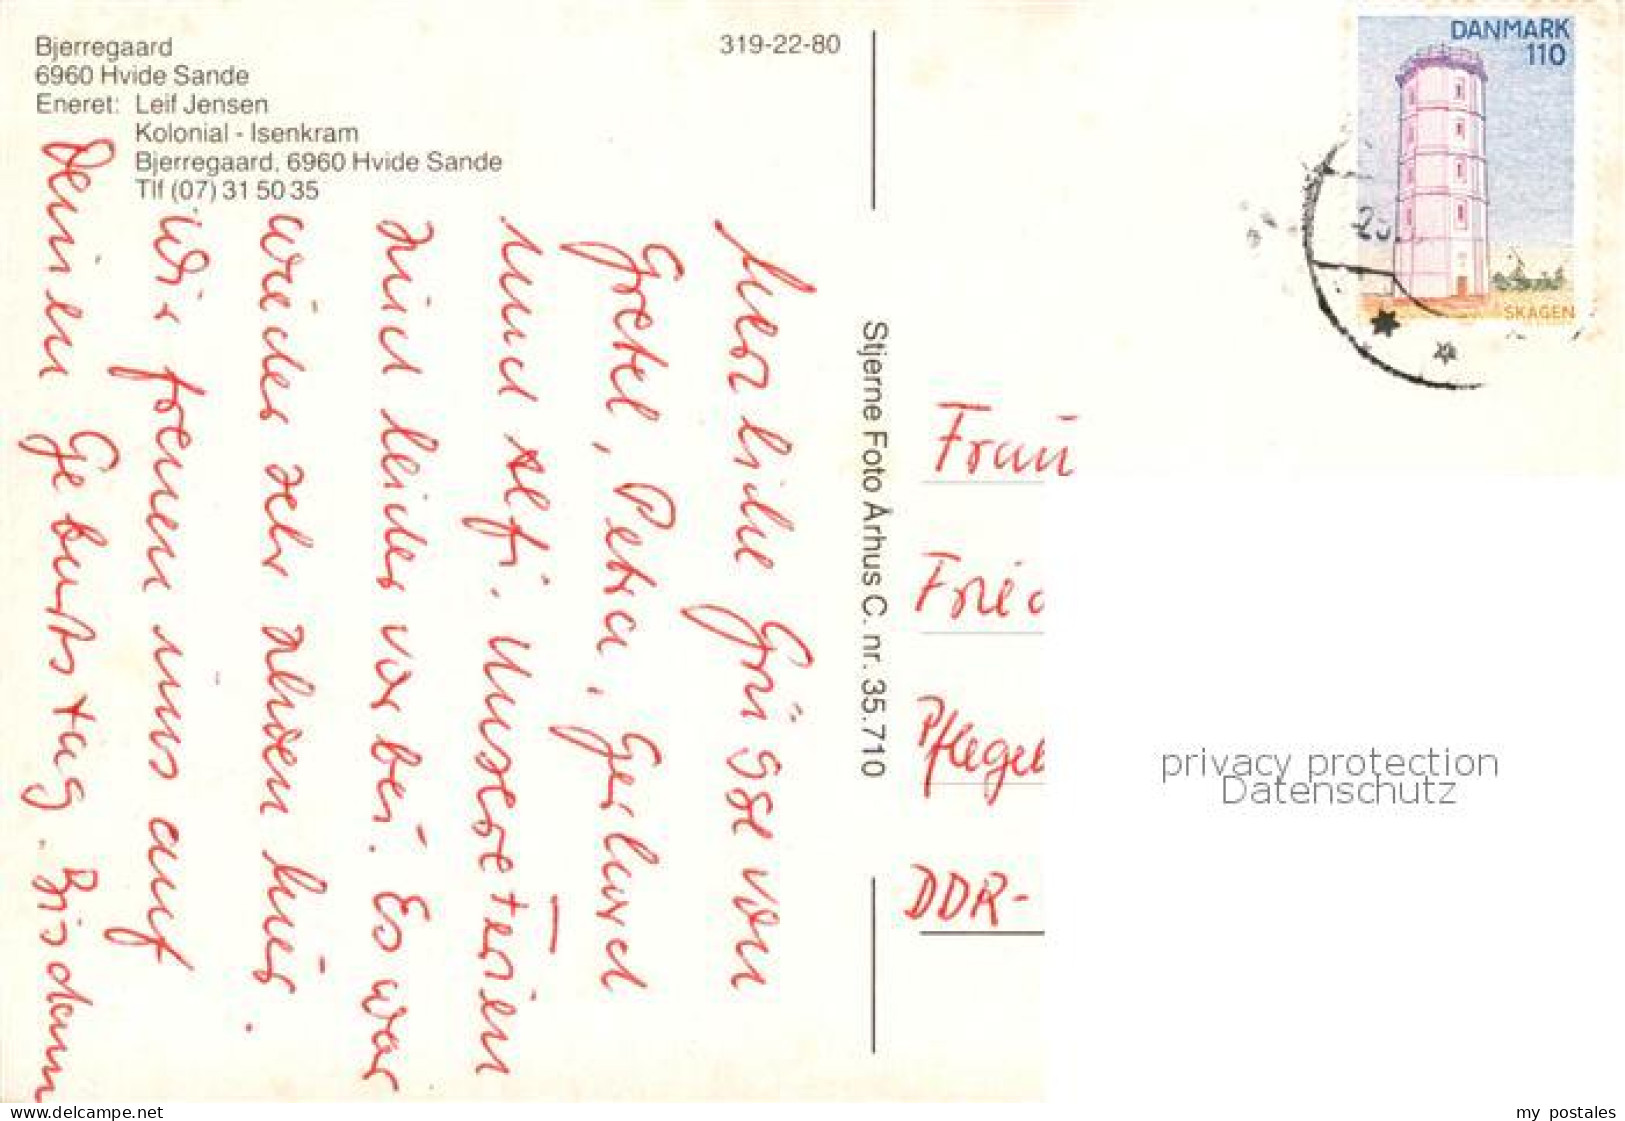 Bjerregaard
6960 Hvide Sande
Eneret: Leif Jensen
Kolonial - Isenkram
Bjerregaard, 6960 Hvide Sande
Tlf (07) 31 50 35
319-22-80
DANMARK
110
SKAGEN
Stjerne Foto Århus C. nr. 35.710
Herzliche Grüsse von
Gretel, Petra, Gerhard
und Alfi. Unsere Ferien
sind leider vorbei. Es war
wieder sehr schön hier.
Wir freuen uns auf
Deinen Geburtstag. Bis dann
Frau
Fried
Pflege
DDR-
privacy protection
Datenschutz
www.delcampe.net
my_postales